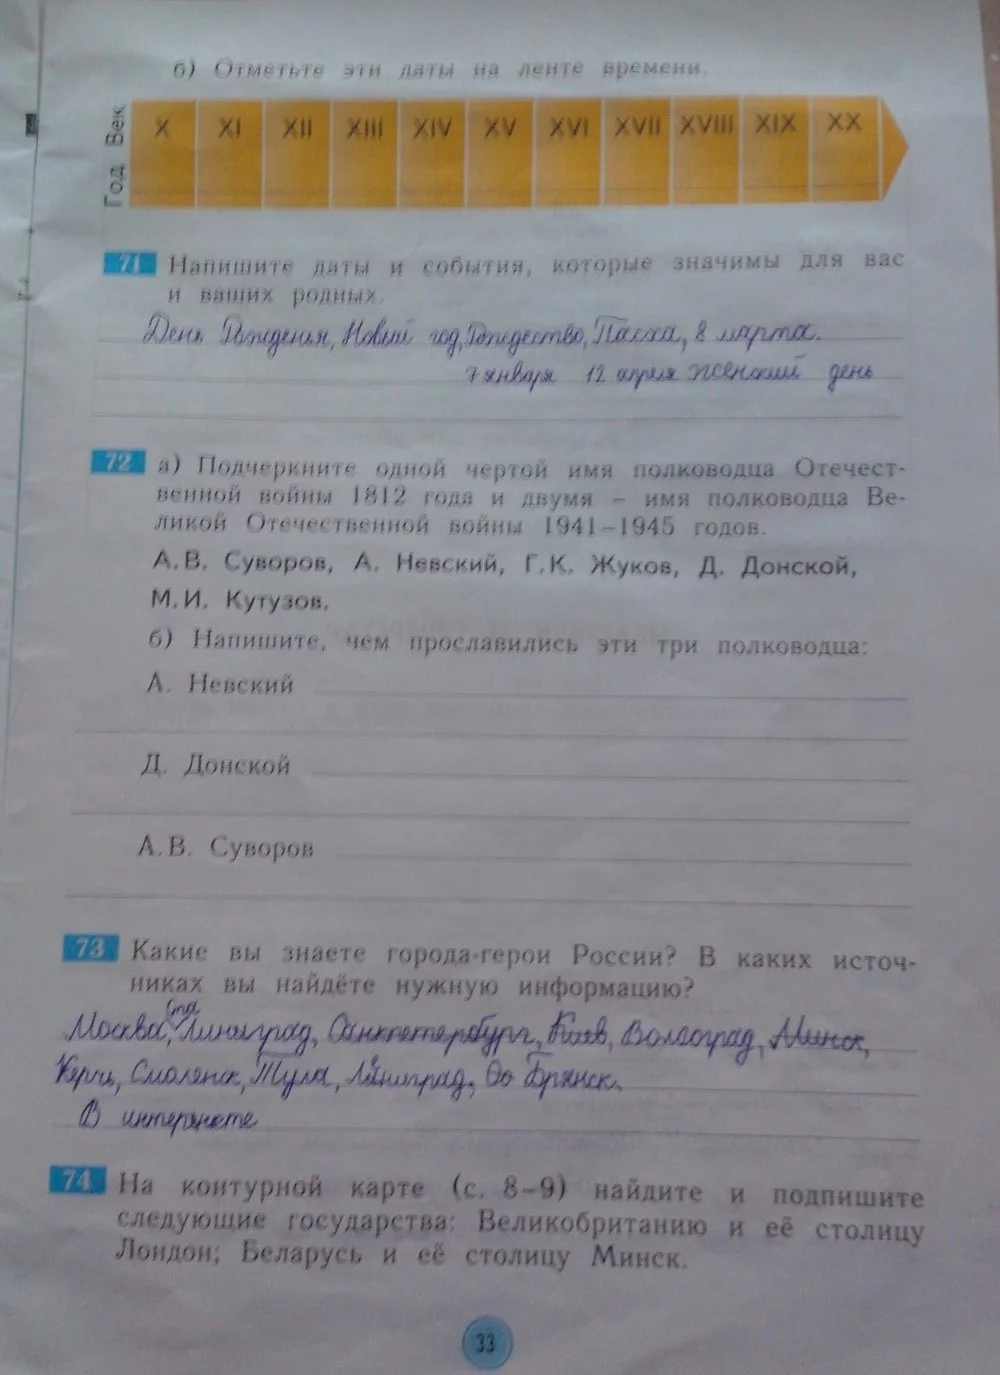 б) Отметьте эти даты на ленте времени.
Год Век X XI XII XIII XIV XV XVI XVII XVIII XIX XX
71 Напишите даты и события, которые значимы для вас
и ваших родных.
День Рождения, Новый год, Рождество, Пасха, 8 марта.
7 января 12 апреля женский день
72 а) Подчеркните одной чертой имя полководца Отечест-
венной войны 1812 года и двумя – имя полководца Ве-
ликой Отечественной войны 1941–1945 годов.
А.В. Суворов, А. Невский, Г.К. Жуков, Д. Донской,
М.И. Кутузов.
б) Напишите, чем прославились эти три полководца:
А. Невский
Д. Донской
А.В. Суворов
73 Какие вы знаете города-герои России? В каких источ-
никах вы найдёте нужную информацию?
Москва, Линиград, Санкпетербург, Киев, Волгоград, Минск,
Керчь, Смоленск, Тула, Брянск.
В интернете
74 На контурной карте (с. 8–9) найдите и подпишите
следующие государства: Великобританию и её столицу
Лондон; Беларусь и её столицу Минск.
33